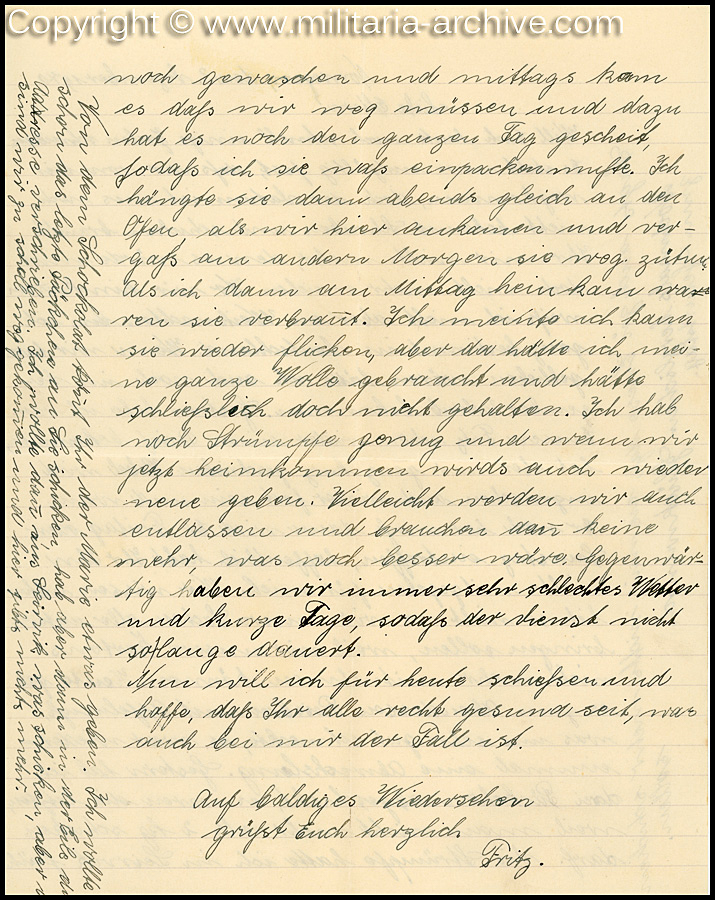 Copyright © www.militaria-archive.com
noch gewaschen und mittags kam
es daß wir weg müssen und dazu
hat es noch den ganzen Tag gescheit,
sodaß ich sie naß einpacken mußte. Ich
hängte sie dann abends gleich an den
Ofen, als wir hier ankamen und ver-
gaß am andern Morgen sie weg zutun.
Als ich dann am Mittag heim kam wa-
ren sie verbrannt. Ich meinte ich kann
sie wieder flicken, aber da hätte ich mei-
ne ganze Wolle gebraucht und hätte
schließlich doch nicht gehalten. Ich hab
noch Strümpfe genug und wenn wir
jetzt heimkommen wirds auch wieder
neue geben. Vielleicht werden wir auch
entlassen und brauchen dan̅ keine
mehr, was noch besser wäre. Gegenwär-
tig haben wir immer sehr schlechtes Wetter
und kurze Tage, sodaß der Dienst nicht
so lange dauert.
Nun will ich für heute schießen und
hoffe, daß Ihr alle recht gesund seit, was
auch bei mir der Fall ist.
Auf baldiges Wiedersehen
grüßt Euch herzlich
Fritz.
Von dem Schockalad könt Ihr der Marie etwas geben. Ich wollte
schon das letzte Päckchen an Sie schicken, hab aber dann in der Eile die
Adresse verschrieben. Ich wollte dan̅ aus was schicken, aber
sind wir zu schnell weggekom̅en und hier gibts nichts mehr.